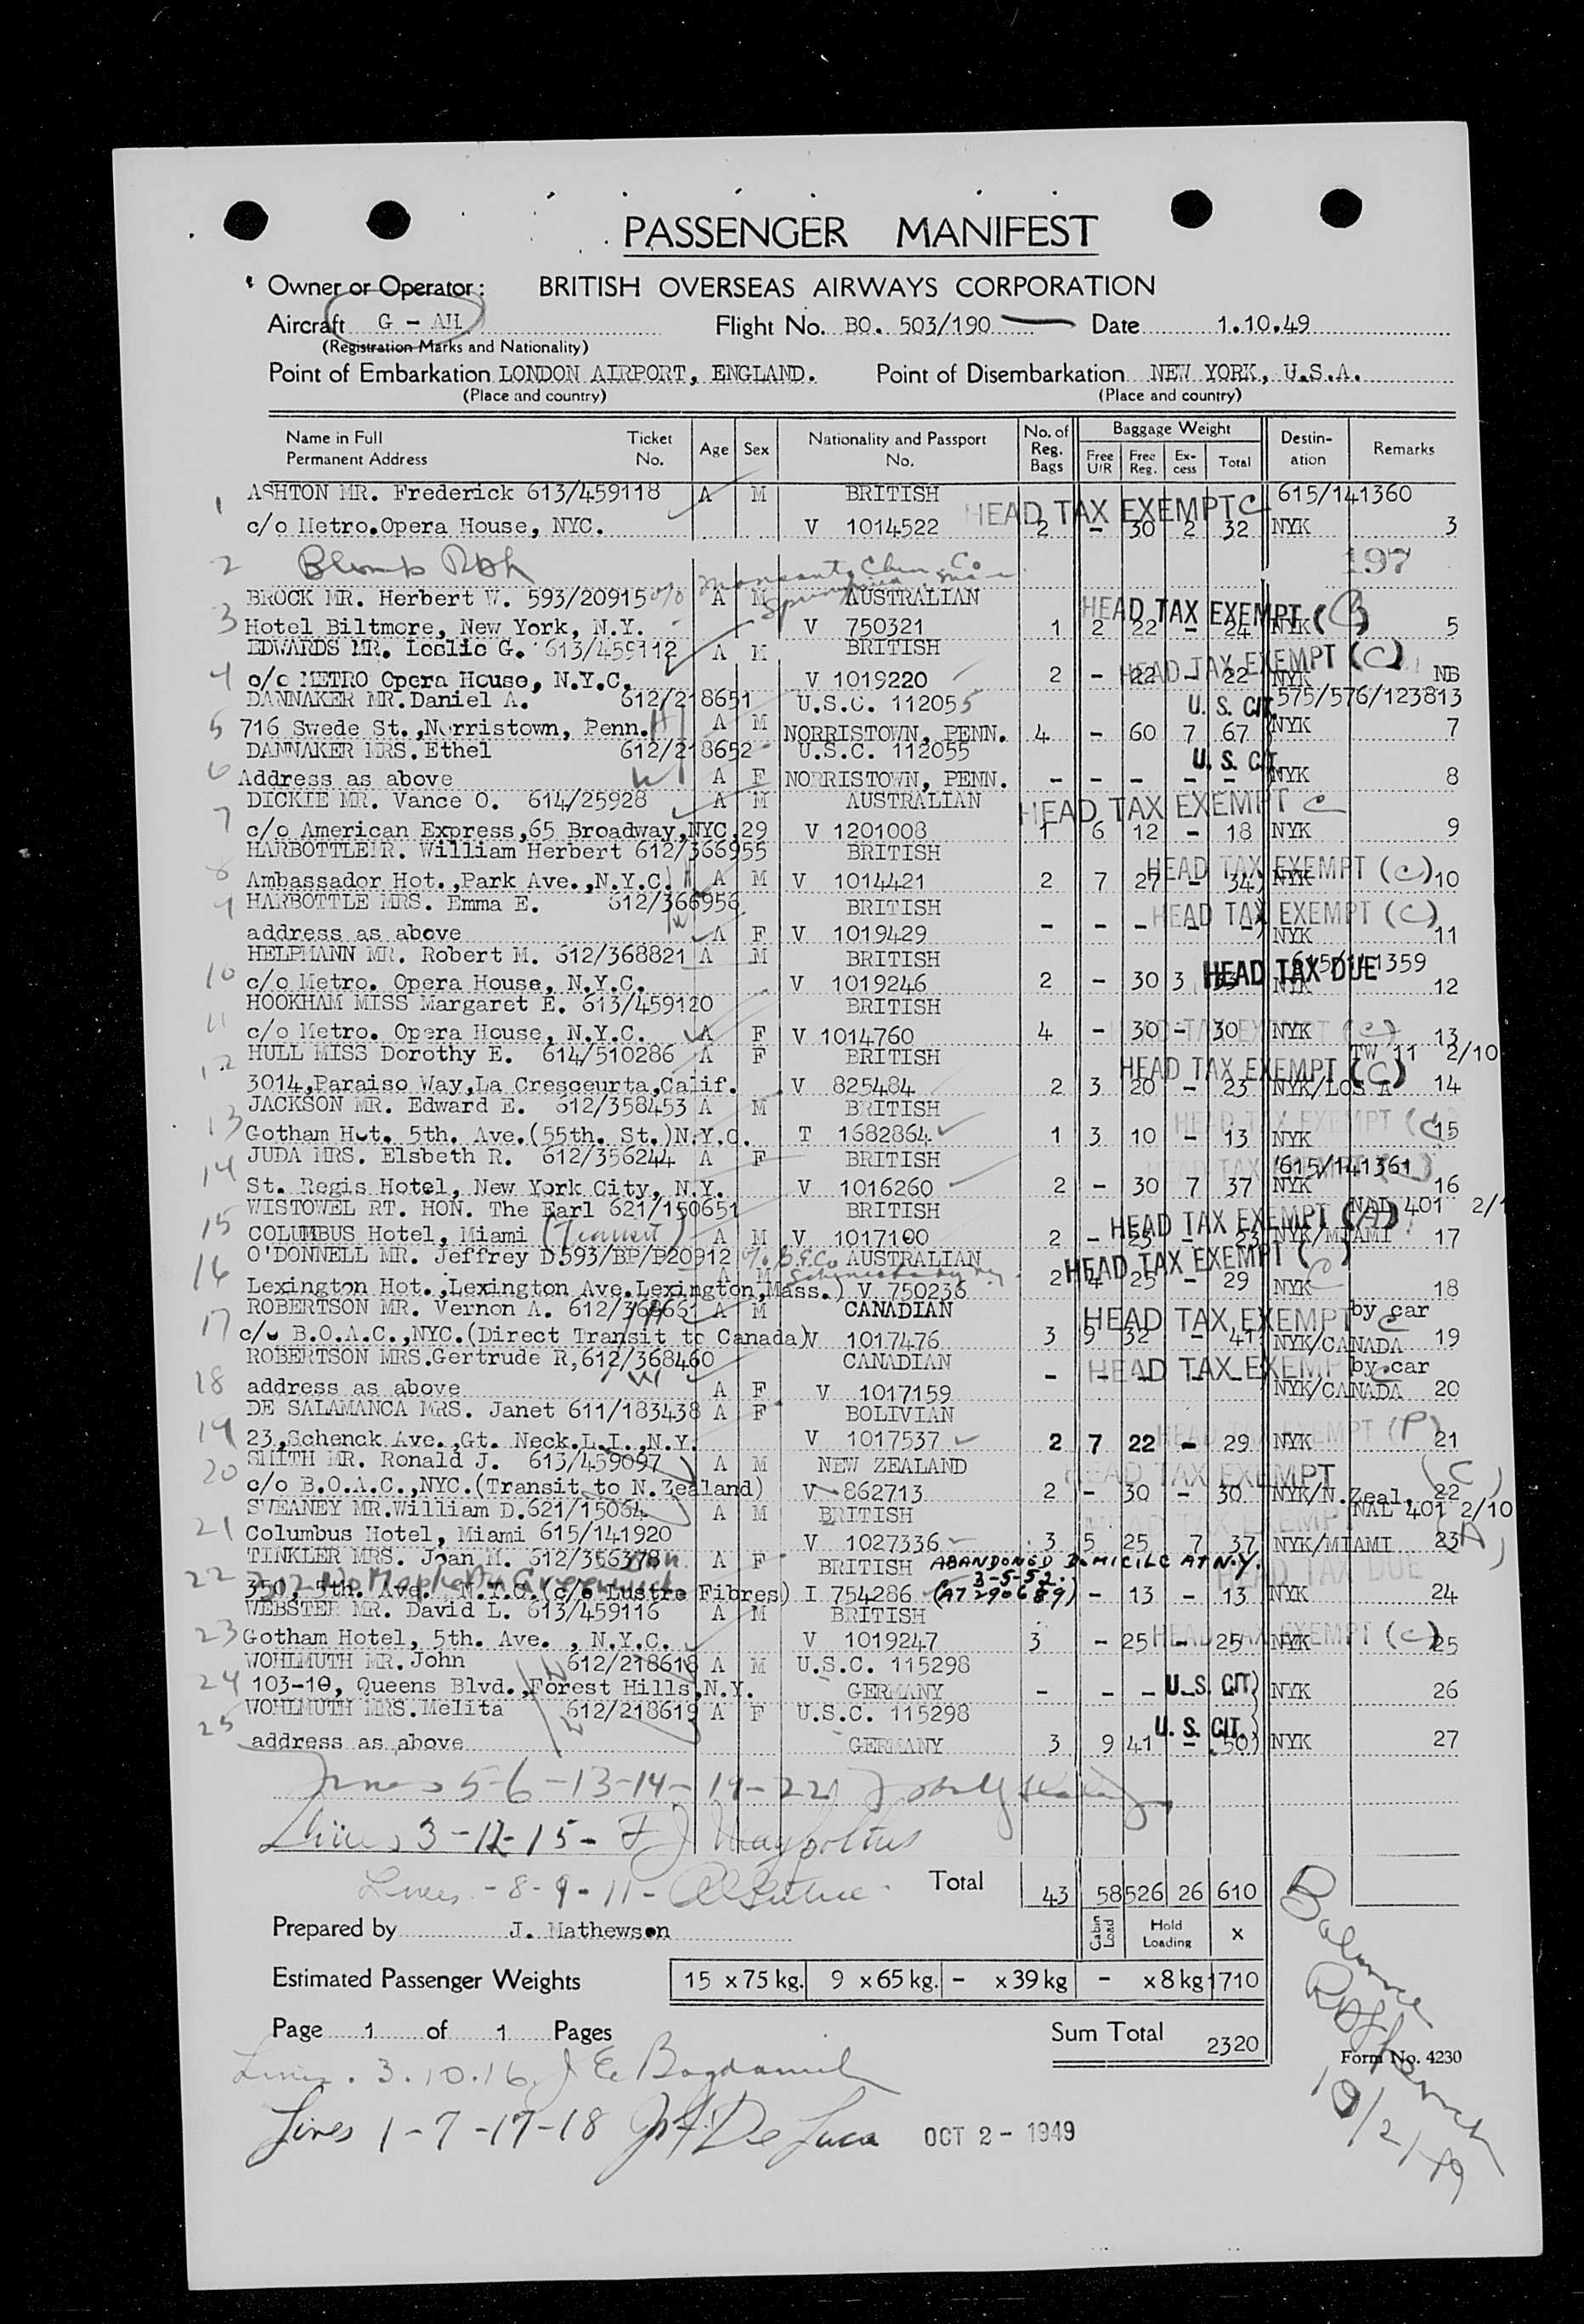 PASSENGER MANIFEST
Owner or Operator: BRITISH OVERSEAS AIRWAYS CORPORATION
Aircraft G - AH Flight No. BO. 503/190 Date 1.10.49
(Registration Marks and Nationality)
Point of Embarkation LONDON AIRPORT, ENGLAND. Point of Disembarkation NEW YORK, U.S.A.
(Place and country) (Place and country)
Name in Full Permanent Address Ticket No. Age Sex Nationality and Passport No. No. of Reg. Bags Baggage Weight Free U/R Free Reg. Ex-cess Total Destin-ation Remarks
1 ASHTON MR. Frederick 613/459118 A M BRITISH HEAD TAX EXEMPT C 615/141360
c/o Metro.Opera House, NYC. V 1014522 2 - 30 2 32 NYK 3
2 197
Monsanto Chem. Co
BROCK MR. Herbert W. 593/20915 c/o A M AUSTRALIAN HEAD TAX EXEMPT (C)
3 Hotel Biltmore, New York, N.Y. V 750321 1 2 22 - 24 NYK 5
EDWARDS MR. Leslie G. 613/459112 A M BRITISH HEAD TAX EXEMPT (C)
4 c/o METRO Opera House, N.Y.C. V 1019220 2 - 22 - 22 NYK NB
DANNAKER MR.Daniel A. 612/218651 U.S.C. 112055 U. S. CIT. 575/576/123813
5 716 Swede St.,Norristown, Penn. H A M NORRISTOWN, PENN. 4 - 60 7 67 NYK 7
DANNAKER MRS.Ethel 612/218652 U.S.C. 112055 U. S. CIT.
6 Address as above W A F NORRISTOWN, PENN. - - - - - NYK 8
DICKIE MR. Vance O. 614/25928 A M AUSTRALIAN HEAD TAX EXEMPT C
7 c/o American Express,65 Broadway,NYC,29 V 1201008 1 6 12 - 18 NYK 9
HARBOTTLEMR. William Herbert 612/366955 BRITISH
8 Ambassador Hot.,Park Ave.,N.Y.C. H A M V 1014421 2 7 27 - 34 NYK HEAD TAX EXEMPT (C) 10
9 HARBOTTLE MRS. Emma E. 612/366956 BRITISH HEAD TAX EXEMPT (C)
address as above W A F V 1019429 - - - - - NYK 11
HELPMANN MR. Robert M. 612/368821 A M BRITISH HEAD TAX DUE 615/141359
10 c/o Metro. Opera House, N.Y.C. V 1019246 2 - 30 3 33 NYK 12
HOOKHAM MISS Margaret E. 613/459120 BRITISH
11 c/o Metro. Opera House, N.Y.C. A F V 1014760 4 - 30 - 30 NYK HEAD TAX EXEMPT (C) 13
12 HULL MISS Dorothy E. 614/510286 A F BRITISH HEAD TAX EXEMPT (C) TW 11 2/10
3014,Paraiso Way,La Cresceurta,Calif. V 825484 2 3 20 - 23 NYK/LOS A 14
JACKSON MR. Edward E. 612/358453 A M BRITISH HEAD TAX EXEMPT (C)
13 Gotham Hot. 5th. Ave.(55th. St.)N.Y.C. T 1682864 1 3 10 - 13 NYK 15
JUDA MRS. Elsbeth R. 612/356244 A F BRITISH HEAD TAX 615/141361
14 St. Regis Hotel, New York City, N.Y. V 1016260 2 - 30 7 37 NYK 16
WISTOWEL RT. HON. The Earl 621/150651 BRITISH NAL 401 2/1
15 COLUMBUS Hotel, Miami (Transit) A M V 1017100 2 - 23 - 23 NYK/MIAMI HEAD TAX EXEMPT (A) 17
O'DONNELL MR. Jeffrey D.593/BP/P20912 c/o AUSTRALIAN HEAD TAX EXEMPT (C)
16 Lexington Hot.,Lexington Ave.Lexington,Mass.) A M V 750236 2 4 25 - 29 NYK 18
ROBERTSON MR. Vernon A. 612/368661 H A M CANADIAN HEAD TAX EXEMPT C by car
17 c/o B.O.A.C.,NYC.(Direct Transit to Canada)V 1017476 3 9 32 - 41 NYK/CANADA 19
ROBERTSON MRS.Gertrude R,612/368460 CANADIAN HEAD TAX EXEMP C by car
18 address as above W A F V 1017159 - - - - - NYK/CANADA 20
DE SALAMANCA MRS. Janet 611/183438 A F BOLIVIAN
19 23,Schenck Ave.,Gt. Neck.L.I.,N.Y. V 1017537 2 7 22 - 29 NYK HEAD TAX EXEMPT (P) 21
SMITH MR. Ronald J. 613/459097 A M NEW ZEALAND HEAD TAX EXEMPT (C)
20 c/o B.O.A.C.,NYC.(Transit to N.Zealand) V 862713 2 - 30 - 30 NYK/N.Zeal. 22
SWEANEY MR.William D.621/15064 A M BRITISH HEAD TAX EXEMPT NAL 401 2/10
21 Columbus Hotel, Miami 615/141920 V 1027336 3 5 25 7 37 NYK/MIAMI 23 (A)
TINKLER MRS. Joan M. 612/356378 A F BRITISH ABANDONED DOMICILE AT N.Y. 3-5-52. HEAD TAX DUE
22 350, 5th. Ave. N.Y.C. (c/o Lustre Fibres) I 754286 (A7 290689) - 13 - 13 NYK 24
WEBSTER MR. David L. 613/459116 A M BRITISH
23 Gotham Hotel, 5th. Ave. , N.Y.C. V 1019247 3 - 25 - 25 NYK HEAD TAX EXEMPT (C) 25
WOHLMUTH MR. John 612/218618 A M U.S.C. 115298
24 103-10, Queens Blvd.,Forest Hills,N.Y. GERMANY - - - U.S. CIT. NYK 26
WOHLMUTH MRS.Melita 612/218619 A F U.S.C. 115298
25 address as above GERMANY 3 9 41 - 50 U. S. CIT. NYK 27
Lines 5-6-13-14-19-22
Lines 3-12-15-
Lines -8-9-11-
Total 43 58 526 26 610
Cabin Load Hold Loading x
Prepared by J. Mathewson
Estimated Passenger Weights 15 x 75 kg. 9 x 65 kg. - x 39 kg - x 8 kg 1710
Page 1 of 1 Pages Sum Total 2320
Form No. 4230
Balance
10/2/49
Lines. 3.10.16.
Lines 1-7-17-18 De Luca OCT 2- 1949